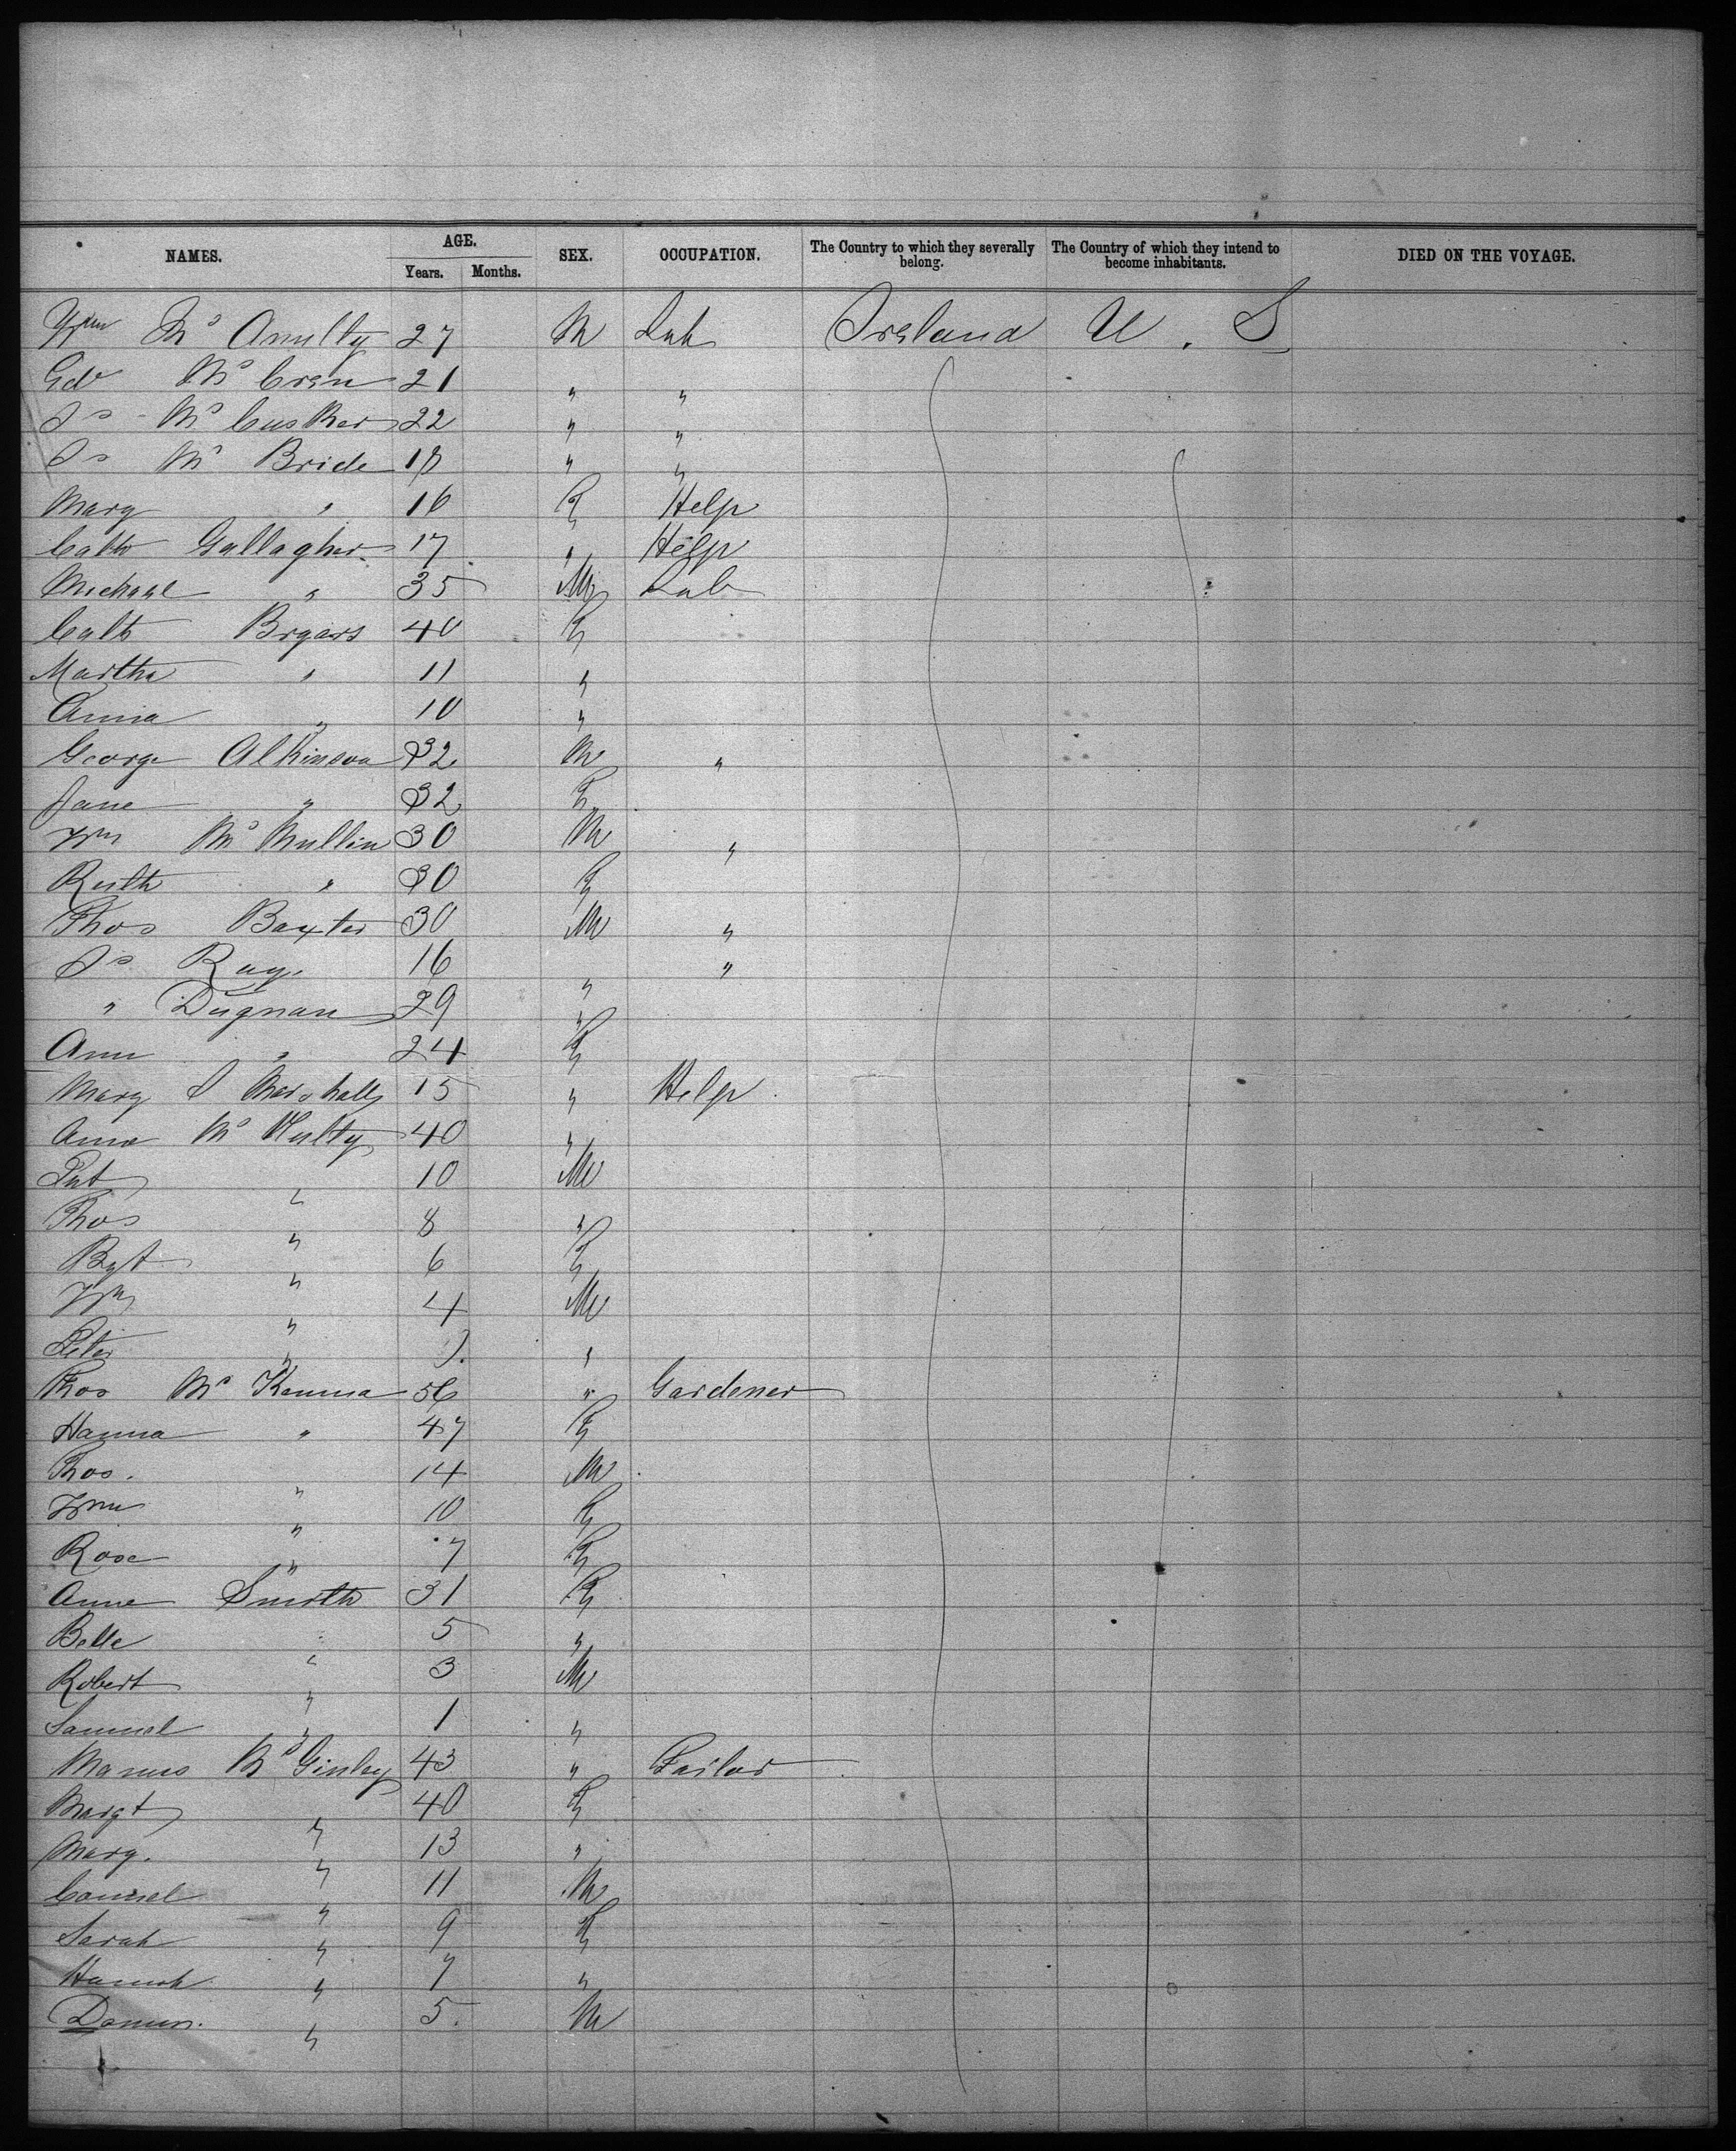 NAMES. AGE. Years. Months. SEX. OCCUPATION. The Country to which they severally belong. The Country of which they intend to become inhabitants. DIED ON THE VOYAGE.
Wm Mc Anulty 27 M Lab Ireland U. S
Edw Mc Cren 21 " "
Js Mc Cusker 22 " "
Js Mc Bride 18 " "
Mary " 16 F Help
Cath Gallagher 17 " Help
Michael " 35 M Lab
Cath Bryars 40 F
Martha " 11 "
Anna " 10 "
George Atkinson 32 M "
Jane " 32 F
Wm Mc Mullin 30 M "
Ruth " 30 F
Thos Baxter 30 M "
Js Ray 16 " "
" Dugnan 29 "
Ann " 24 F
Mary J Marshall 15 " Help
Anne Mc Nulty 40 "
Pat " 10 M
Thos " 8 "
Bgt " 6 F
Wm " 4 M
Peter " "
Thos Mc Kenna 56 " Gardener
Hanna " 47 F
Thos. " 14 M
Wm " 10 F
Rose " 7 F
Anne Smith 31 F
Belle " 5 "
Robert " 3 M
Samuel " 1 "
Manus Mc Ginley 43 " Tailor
Margt " 40 F
Mary. " 13 "
Connel " 11 M
Sarah " 9 F
Hannah " 7 "
" 5. M